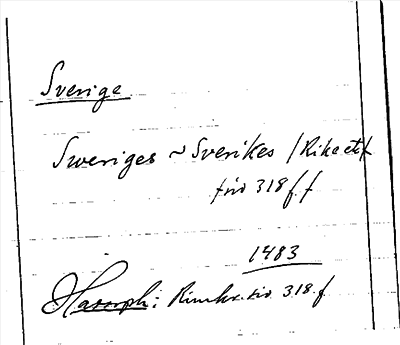 Sverige
Sweriges ~ Sverikes / Rike etc
sid 318 ff
1483
Hadorph: Rimkr. sid. 318 f